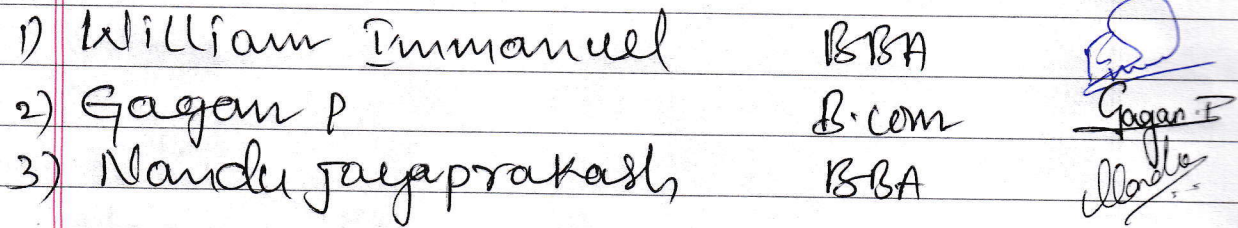 1) William Immanuel BBA
2) Gagan P B.com Gagan.P
3) Nandu jayaprakash BBA Nandu